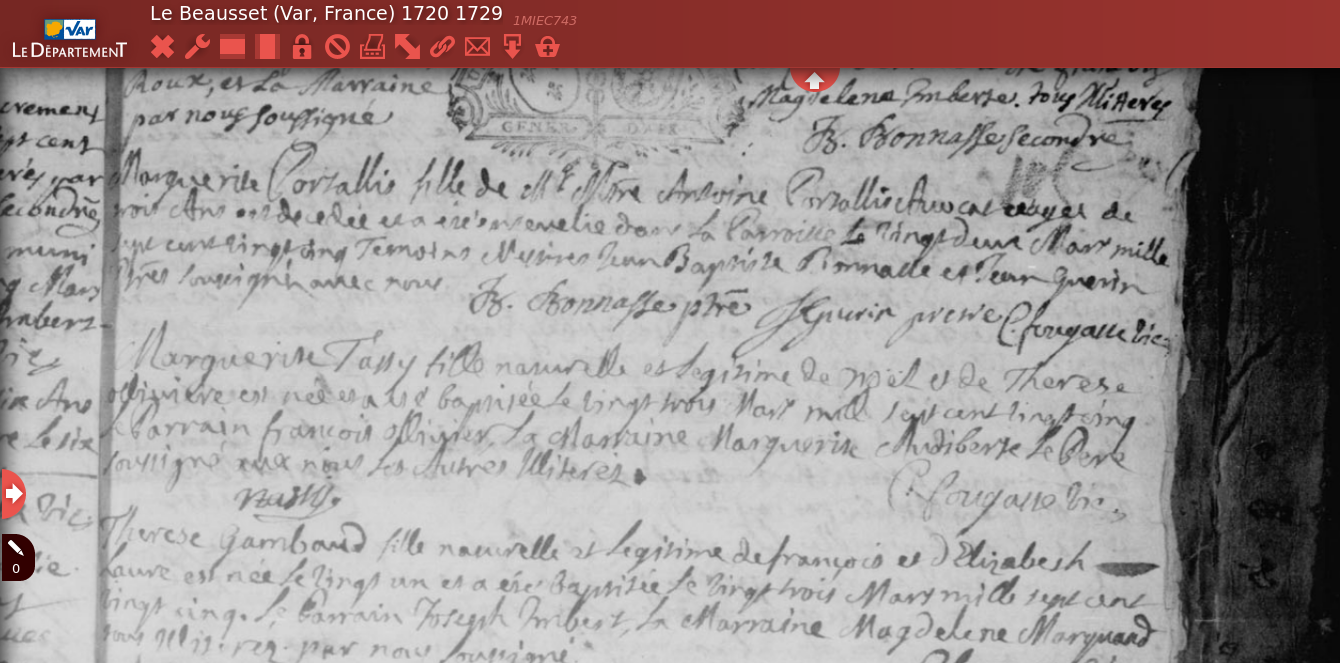 Le Beausset (Var, France) 1720 1729
1MIEC743
VAR
LE DÉPARTEMENT
Roux, et La Marraine
par nous soussigné
GENER DAIX
Magdelene Imberte. tous Illiteres
B. Bonnasse Secondre
crement
pt cent
par
secondre
muni
Mars
Imbert
Ans
Le six
Marguerite Portallis fille de Mre Antoine Portallis Auvocat agee de
trois Ans est decedée et a été ensevelie dans la Parroisse Le vingt deux Mars mille
sept cent vingt cinq Temoins Messires Jean Baptiste Bonnasse et Jean Guerin
ptres soussignés avec nous
B. Bonnasse ptre J Guerin pretre C. fougasse vic.
Marguerite Tassy fille naturelle et Legitime de Noel et de Therese
ollivière est née et a été baptisée Le vingt trois Mars mill sept cent vingt cinq
Le Parrain françois ollivier, La Marraine Marguerite Audiberte Le Pere
soussigné avec nous Les Autres Illiterez.
C. fougasse vic.
Tassy.
Therese Gambaud fille naturelle et Legitime de françois et d'Elizabeth
aure est née Le vingt un et a été Baptisée Le vingt trois Mars mille sept cent
vingt cinq. Le Parrain Joseph Imbert, La Marraine Magdelene Marquand
tous Illiterez. par nous soussigné.
0